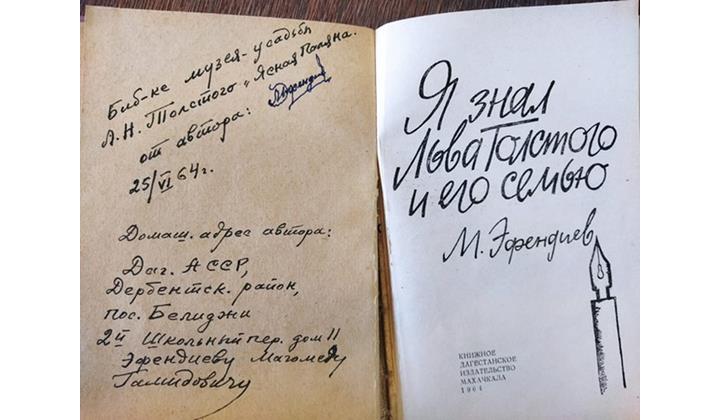 Биб-ке музея-усадьбы
Л. Н. Толстого „Ясная Поляна.
от автора: МЭфендиев
25/VI 64 г.
Домаш. адрес автора:
Даг. АССР,
Дербентск. район,
пос. Белиджи
2й Школьный пер. дом 11
Эфендиеву Магомеду
Гамидовичу
Я знал
Льва Толстого
и его семью
М. Эфендиев
КНИЖНОЕ
ДАГЕСТАНСКОЕ
ИЗДАТЕЛЬСТВО
МАХАЧКАЛА
1964